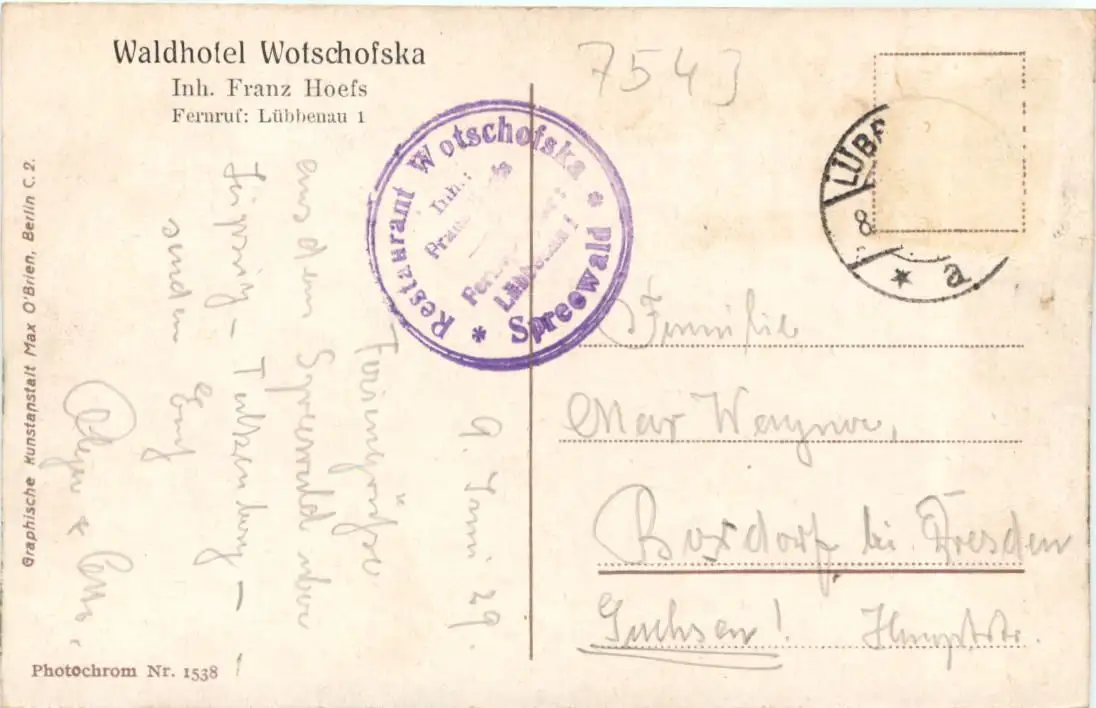 Waldhotel Wotschofska
Inh. Franz Hoefs
Fernruf: Lübbenau 1
7543
Restaurant Wotschofska * Spreewald *
Inh.:
Lübbenau 1
LÜBB
8
* a
9. Juni 29.
Feriengrüße
aus dem Spreewald über
Leipzig – Falkenberg –
senden Euch
Familie
Max Wagner,
Boxdorf bei Dresden
Sachsen! Hauptstr.
Graphische Kunstanstalt Max O'Brien, Berlin C. 2.
Photochrom Nr. 1538